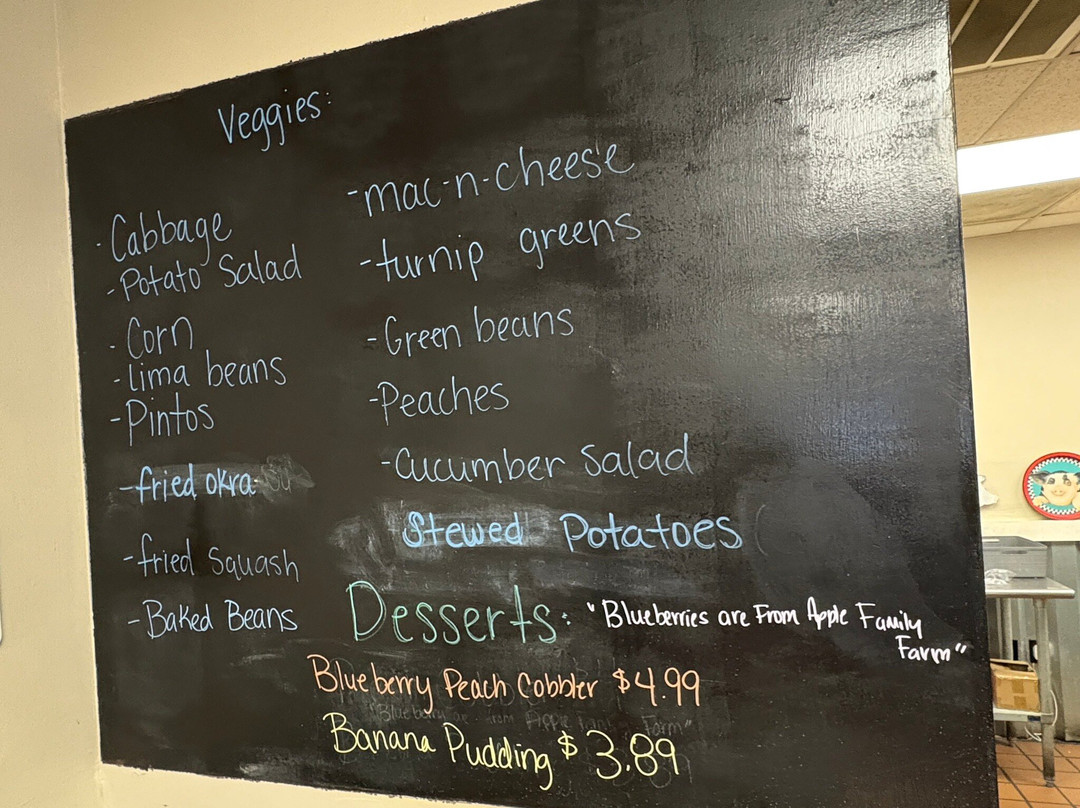 Veggies:
- Cabbage
- Potato Salad
- Corn
- lima beans
- Pintos
- fried okra
- fried Squash
- Baked Beans
- mac-n-cheese
- turnip greens
- Green beans
- Peaches
- Cucumber Salad
Stewed Potatoes
Desserts:
"Blueberries are From Apple Family
Farm"
Blueberry Peach Cobbler $4.99
Banana Pudding $3.89